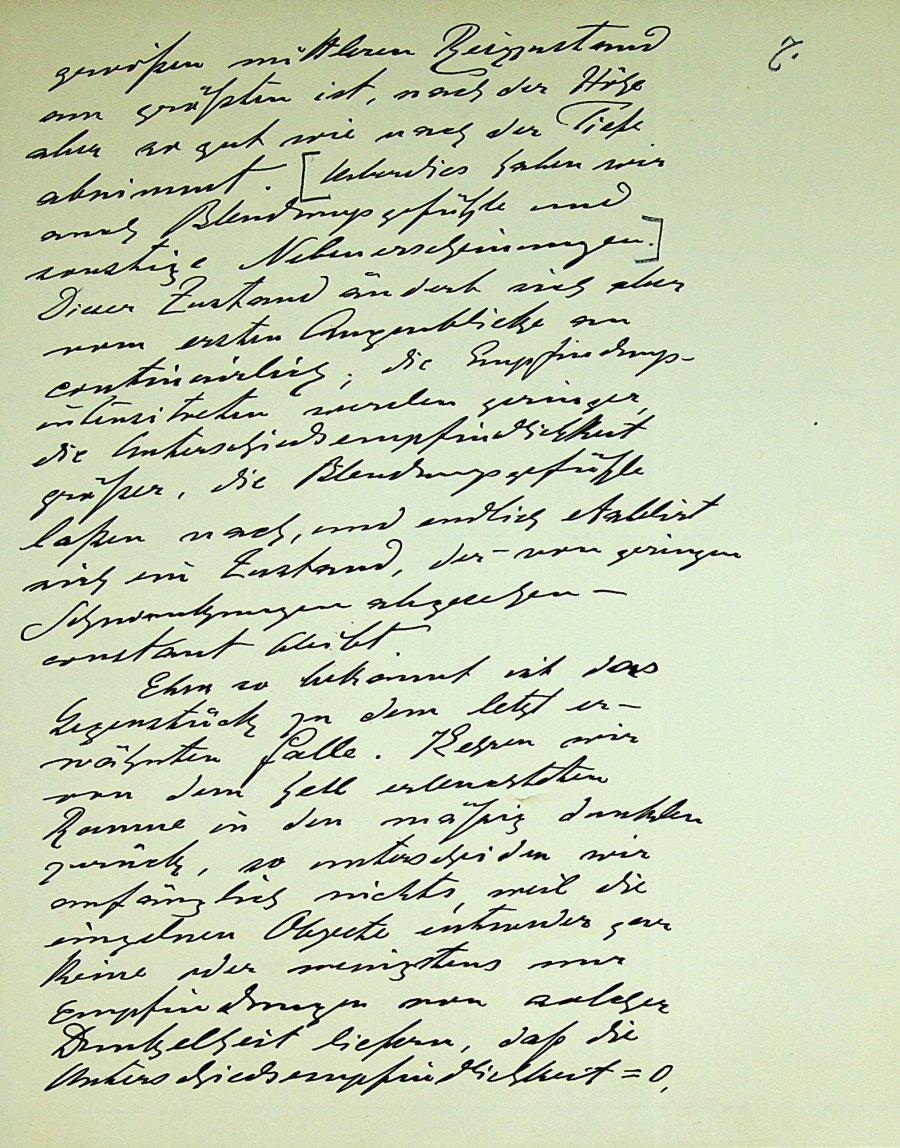 7.
gewißen mittleren Reizzustand
am größten ist, nach der Höhe
aber so gut wie nach der Tiefe
abnimmt. [Ueberdies haben wir
auch Blendungsgefühle und
sonstige Nebenerscheinungen.]
Dieser Zustand ändert sich aber
vom ersten Augenblicke an
continuirlich; die Empfindungs-
intensitäten werden geringer,
die Unterschiedsempfindlichkeit
größer, die Blendungsgefühle
laßen nach, und endlich etablirt
sich ein Zustand, der – von geringen
Schwankungen abgesehen –
constant bleibt
Eben so bekannt ist das
Gegenstück zu dem letzt er-
wähnten Falle. Kehren wir
von dem hell erleuchteten
Raume in den mäßig dunklen
zurück, so unterscheiden wir
anfänglich nichts, weil die
einzelnen Objecte entweder gar
keine oder wenigstens nur
Empfindungen von solcher
Dunkelheit liefern, daß die
Unterschiedsempfindlichkeit = 0,